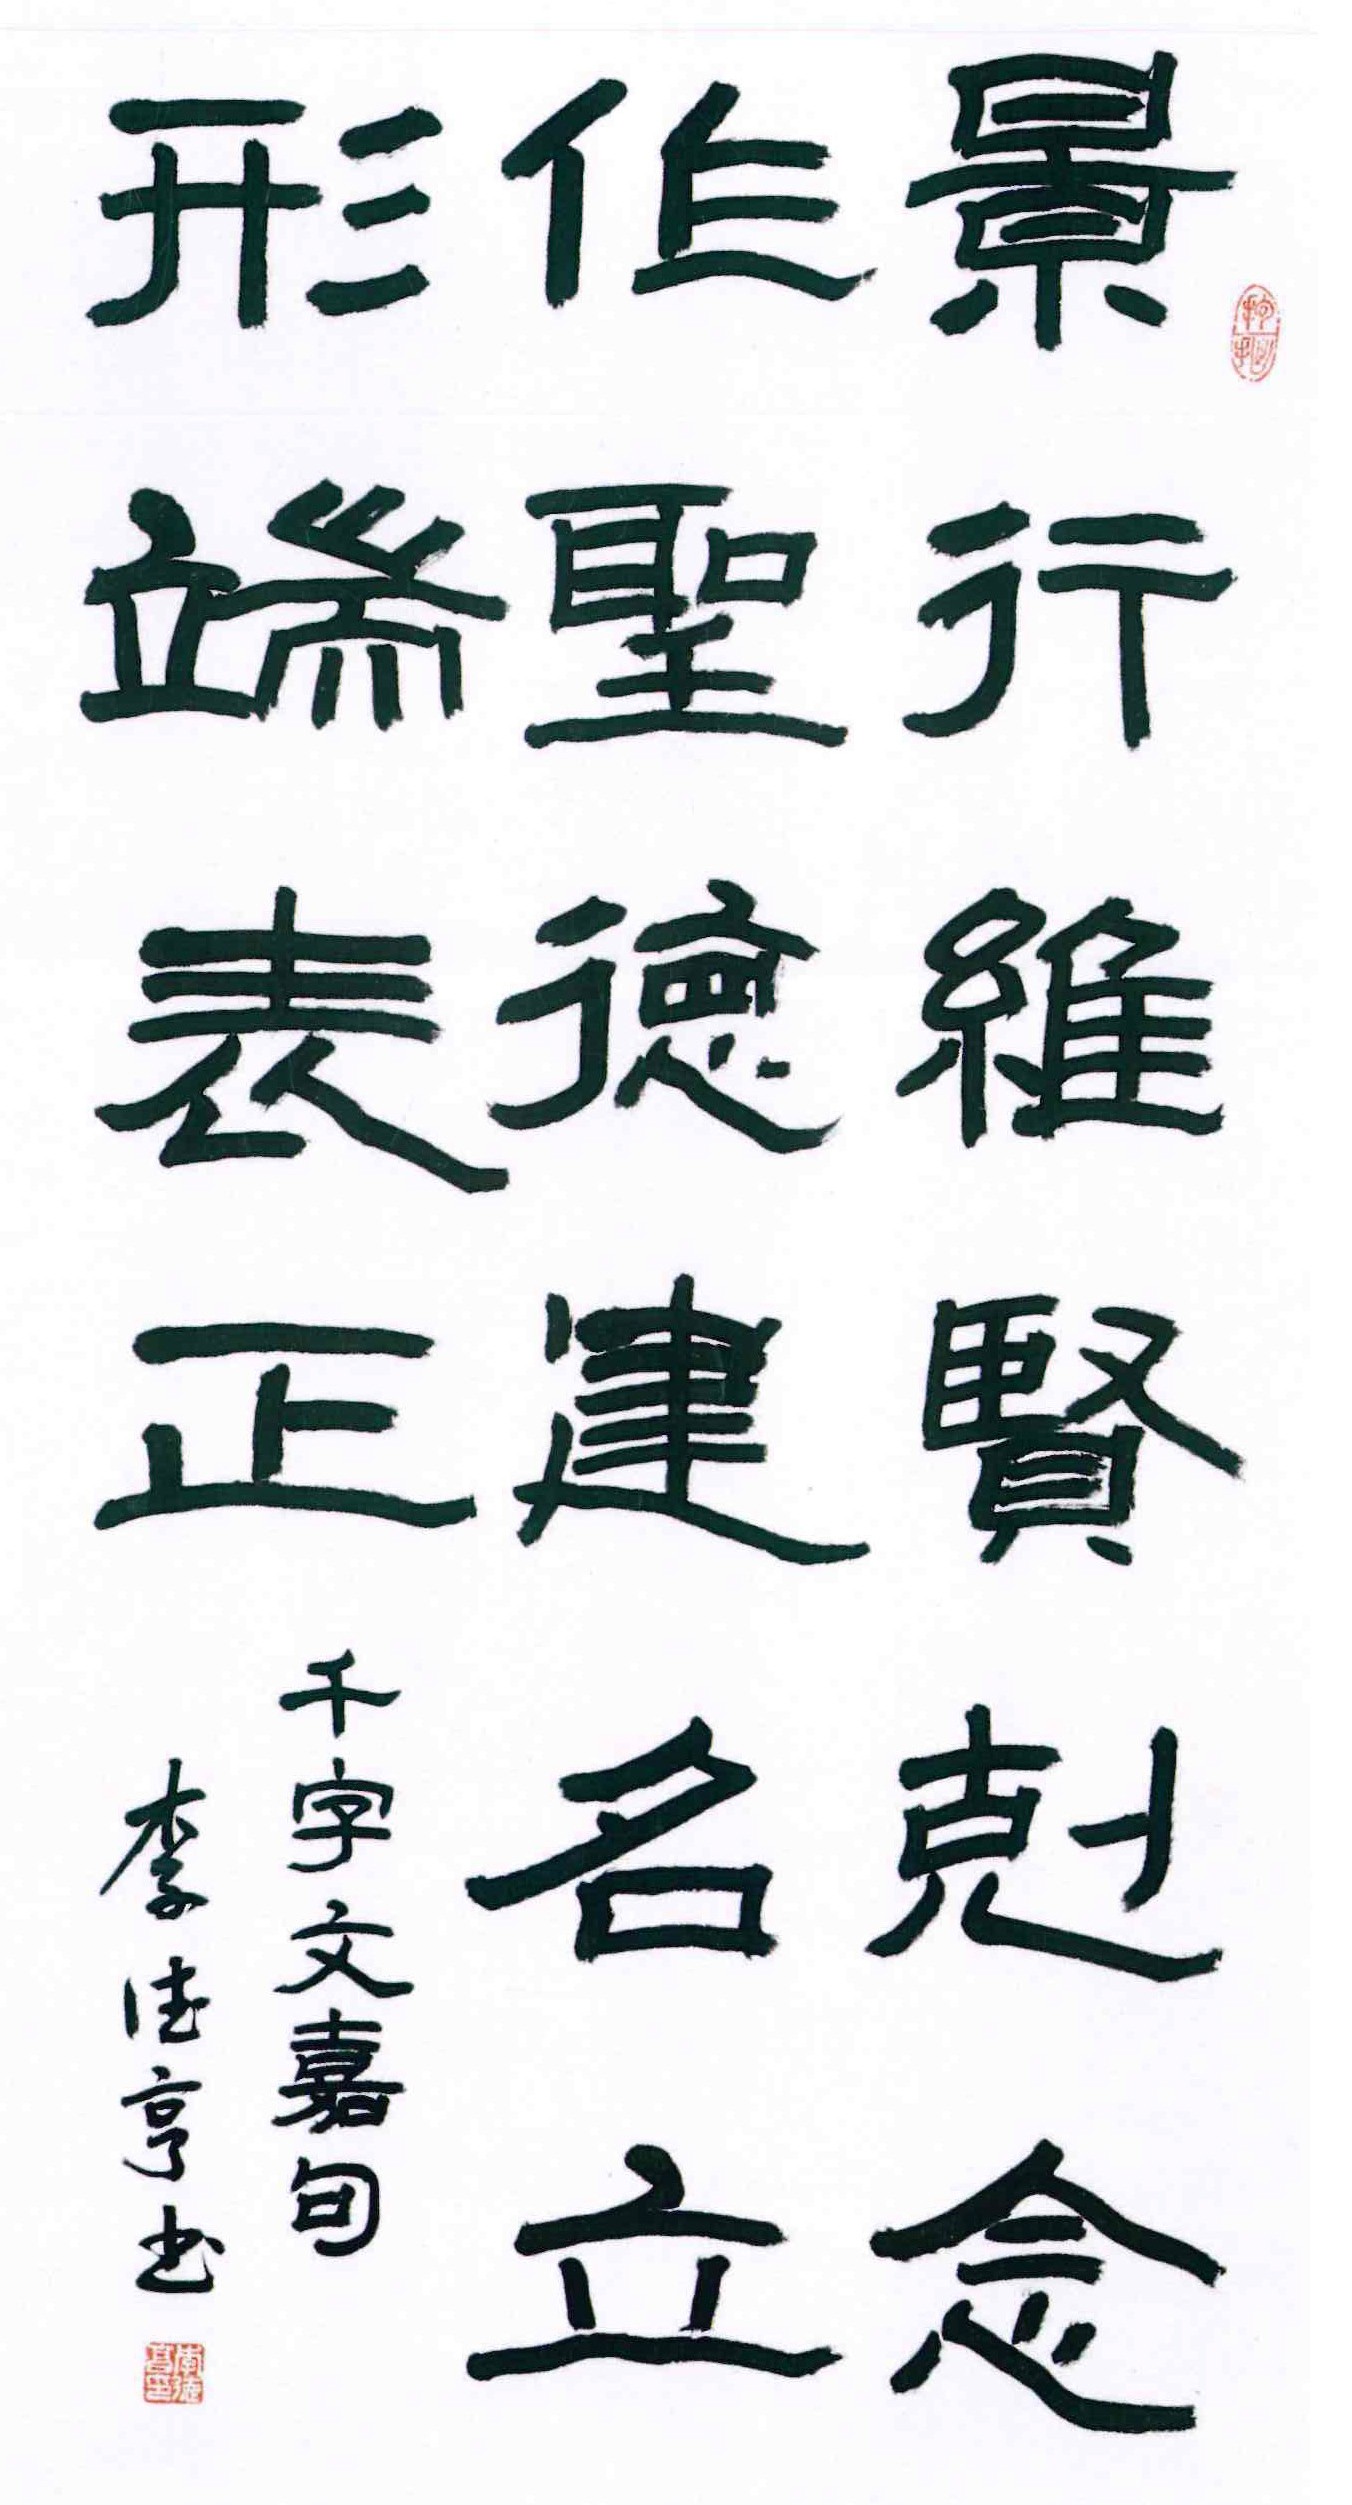 景行維賢剋念
作聖德建名立
形端表正
千字文嘉句
李德亨書
李德亨印